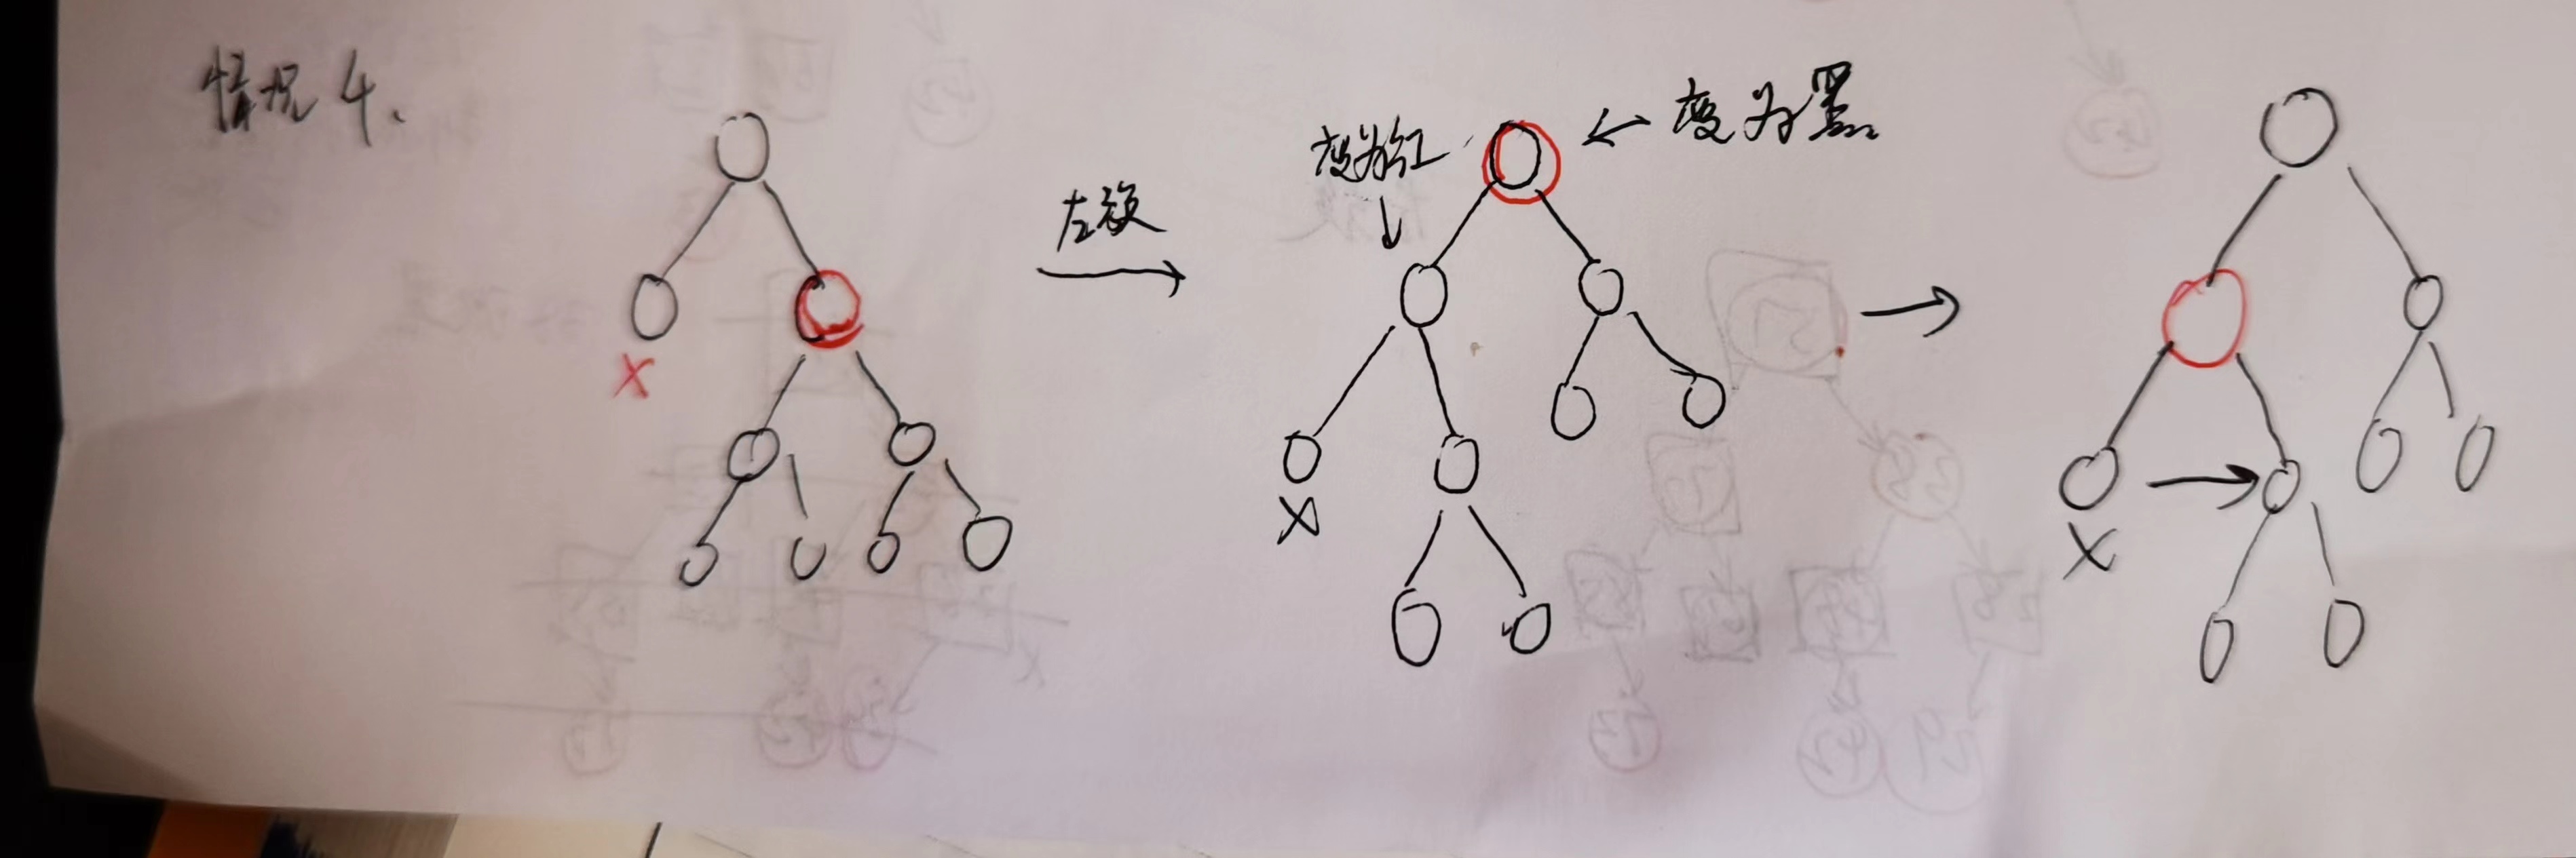 情况4、
左旋
变为红
变为黑
X
X
X